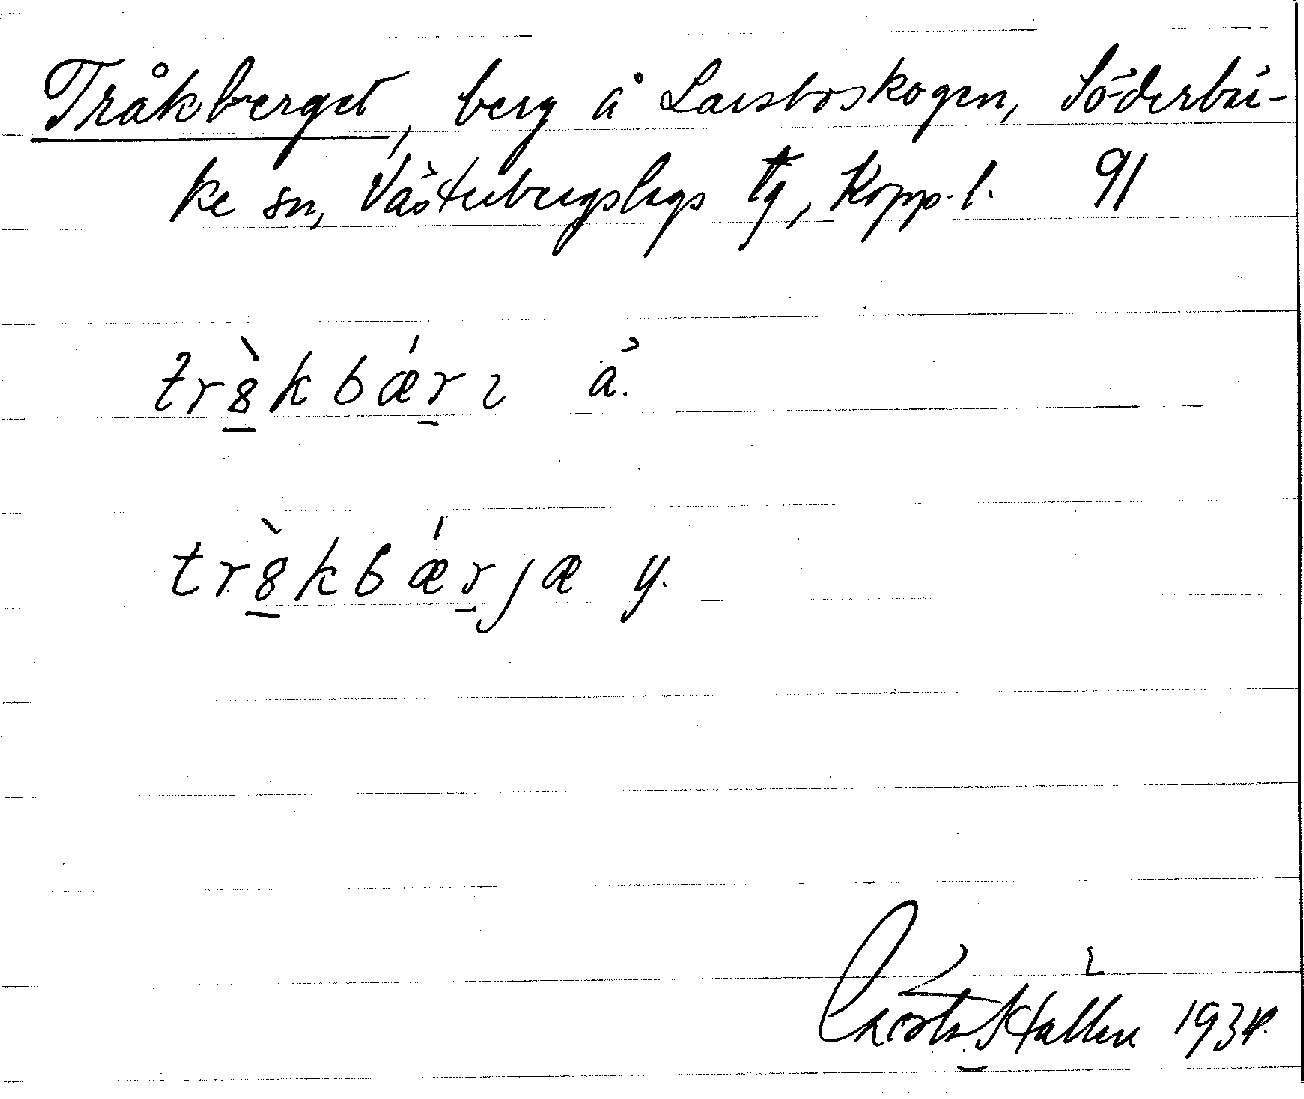 Tråkberget, berg å Larsboskogen, Söderbär-
ke sn, Västerbergslags tg, Kopp. l. 91
tr8̀kbǽrı å.
tr8̀kbǽrjæ y.
Hallén 1934.